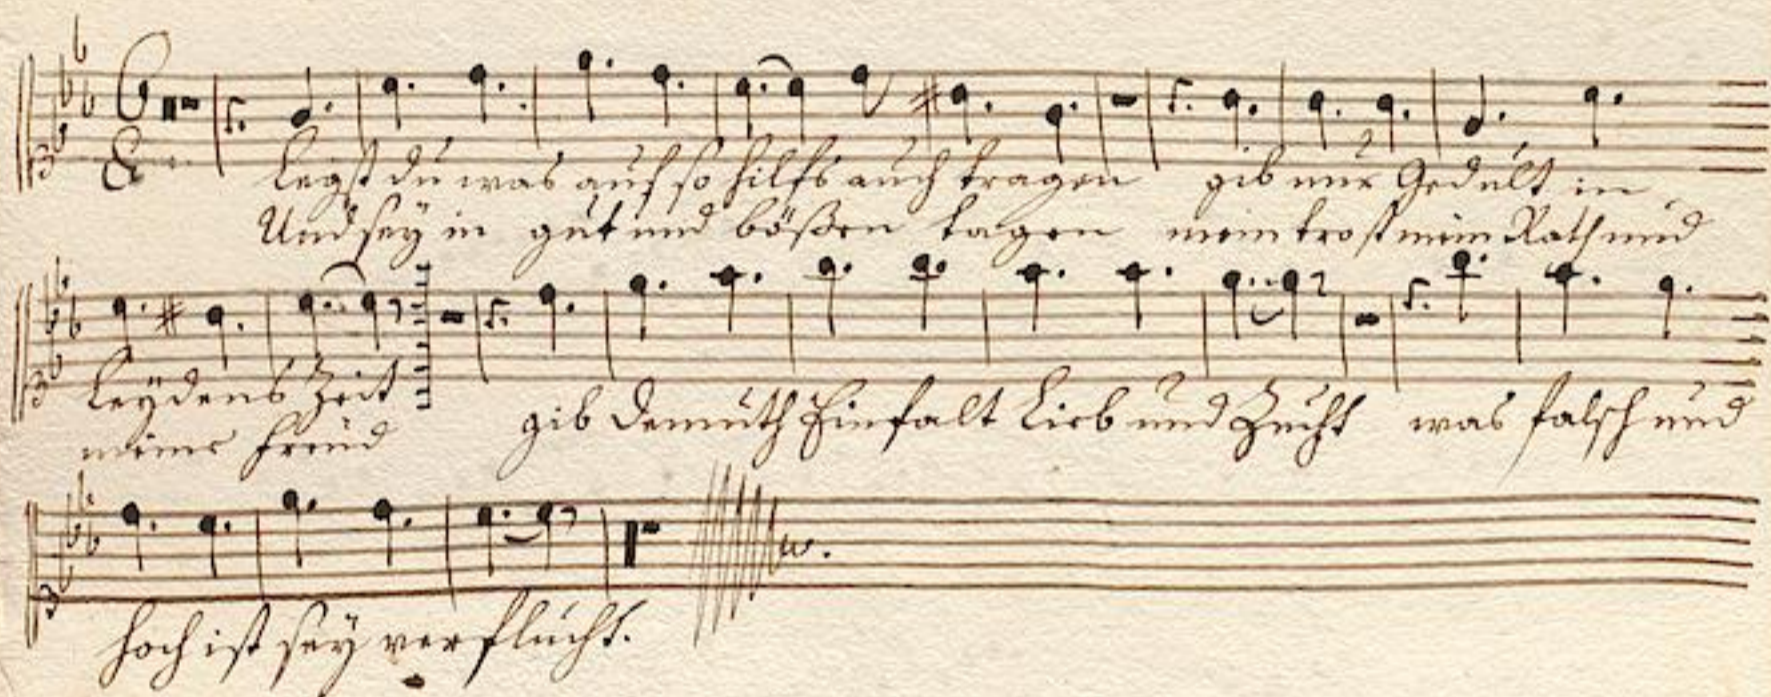 Legst du was auf so hilfs auch tragen gib nur Gedult in
Und sey in gut und bößen tagen mein trost mein Rath und
Leydens Zeit gib Demuth Einfalt Lieb und Zucht was falsch und
meine freud
hoch ist sey verflucht.